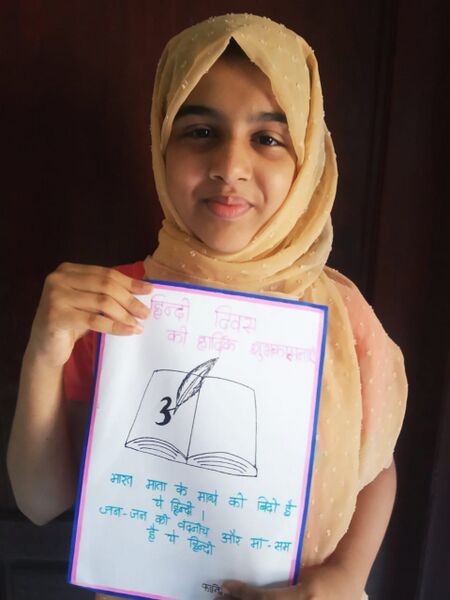 हिन्दी दिवस
की हार्दिक शुभकामनाएँ
भारत माता के माथे की बिंदी है
ये हिन्दी।
जन-जन की वंदनीय और मां-सम
है ये हिन्दी